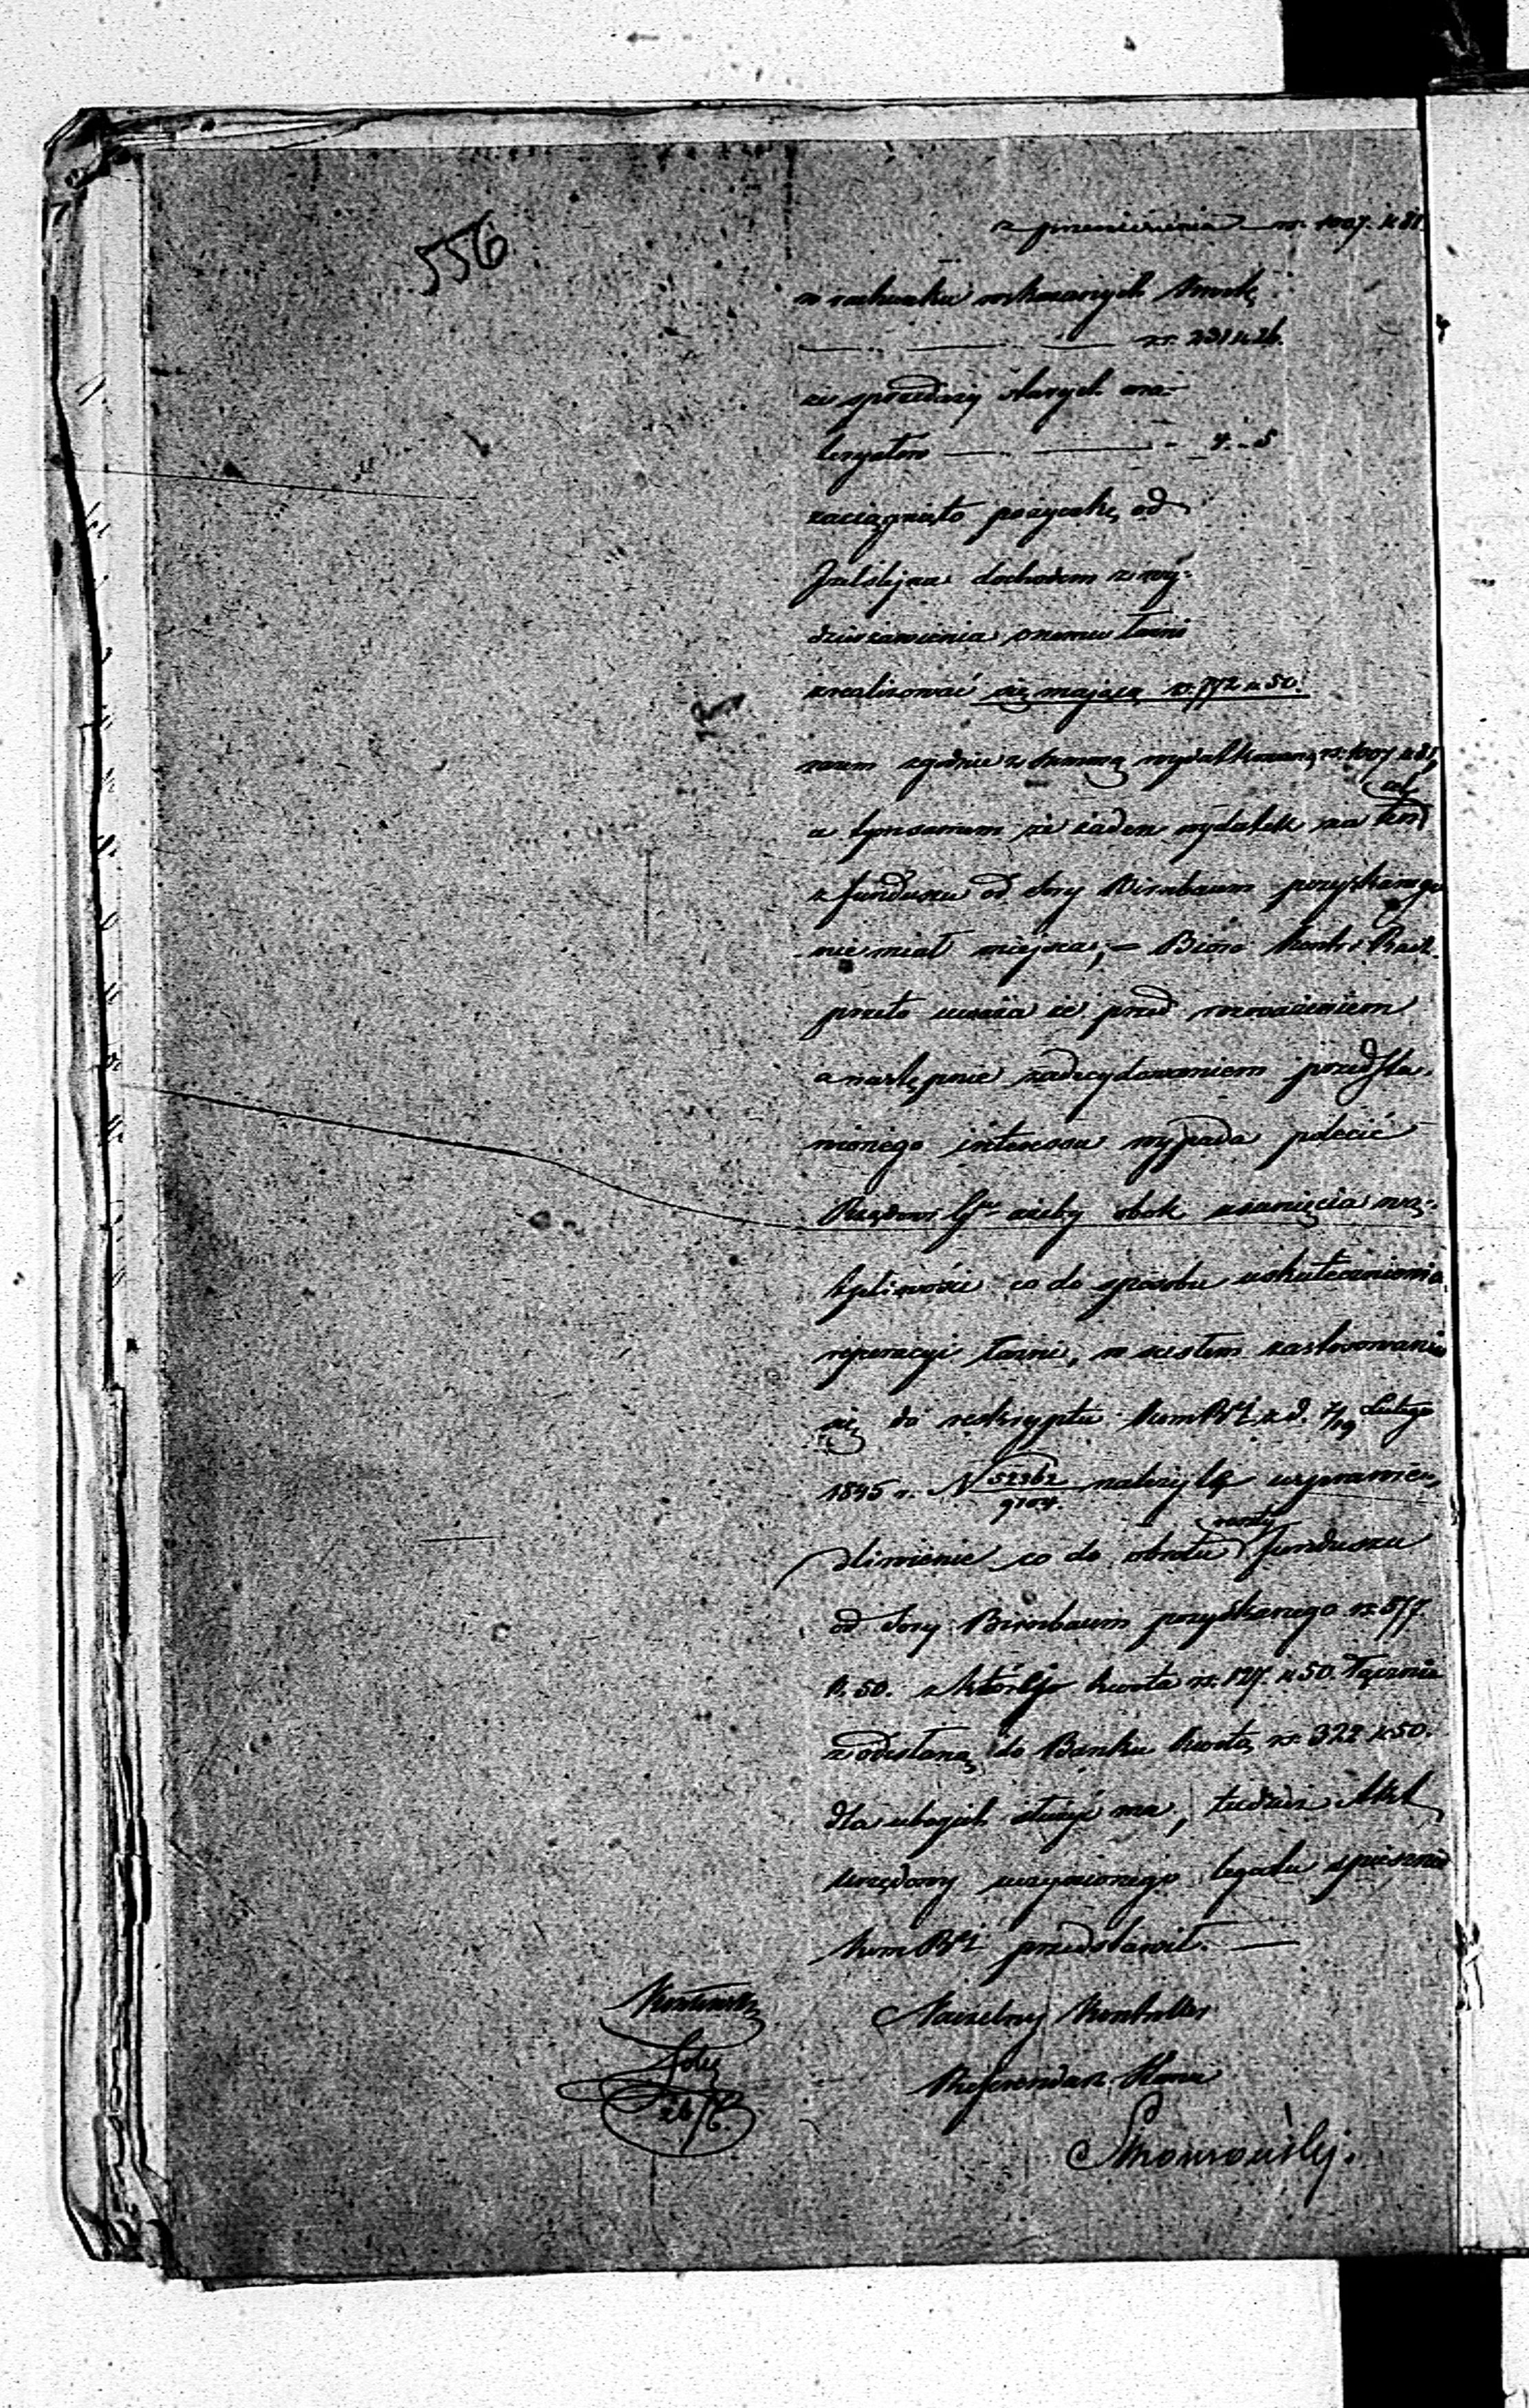 556
z przeniesienia rs. 1007. k 81
w rachunku wskazanych kwotę
rs. 231 k 26.
ze sprzedaży starych ma-
teryałów - 4. - 5
zaciągnięto pożyczkę od
Jzelsteyna dochodem z wy-
dzierżawienia onemu łazni
zrealizować się mającą rs. 772 k 50.
razem zgodnie z summą wydatkowaną rs. 1007 k 81,
a tymsamem że żaden wydatek na ten cel
z funduszu od Sory Birnbaum pozyskanego
nie miał miejsca; – Bióro Kontr. Rach.
przeto uważa że przed rozważeniem
a następnie zadecydowaniem przedsta-
wionego interessu wypada polecić
Rządowi Gu ażeby obok usunięcia wą-
tpliwości co do sposobu uskutecznienia
reperacyi łazni, w ścisłem zastosowaniu
się do reskryptu Kom R. z d. 7/19 Lutego
1845 r. N 52362/9104 należyte usprawie-
dliwienie co do obrotu reszty funduszu
od Sory Birnbaum pozyskanego rs. 577
k. 50. z której kwota rs. 127. k 50. łącznie
z odesłaną do Banku kwotą rs. 322 k 50.
dla ubogich służyć ma, tudzież Akt
urzędowy uczynionego legatu
Kom R. przedstawił. —
Naczelny Kontroller
Referendarz Stanu
26/6.